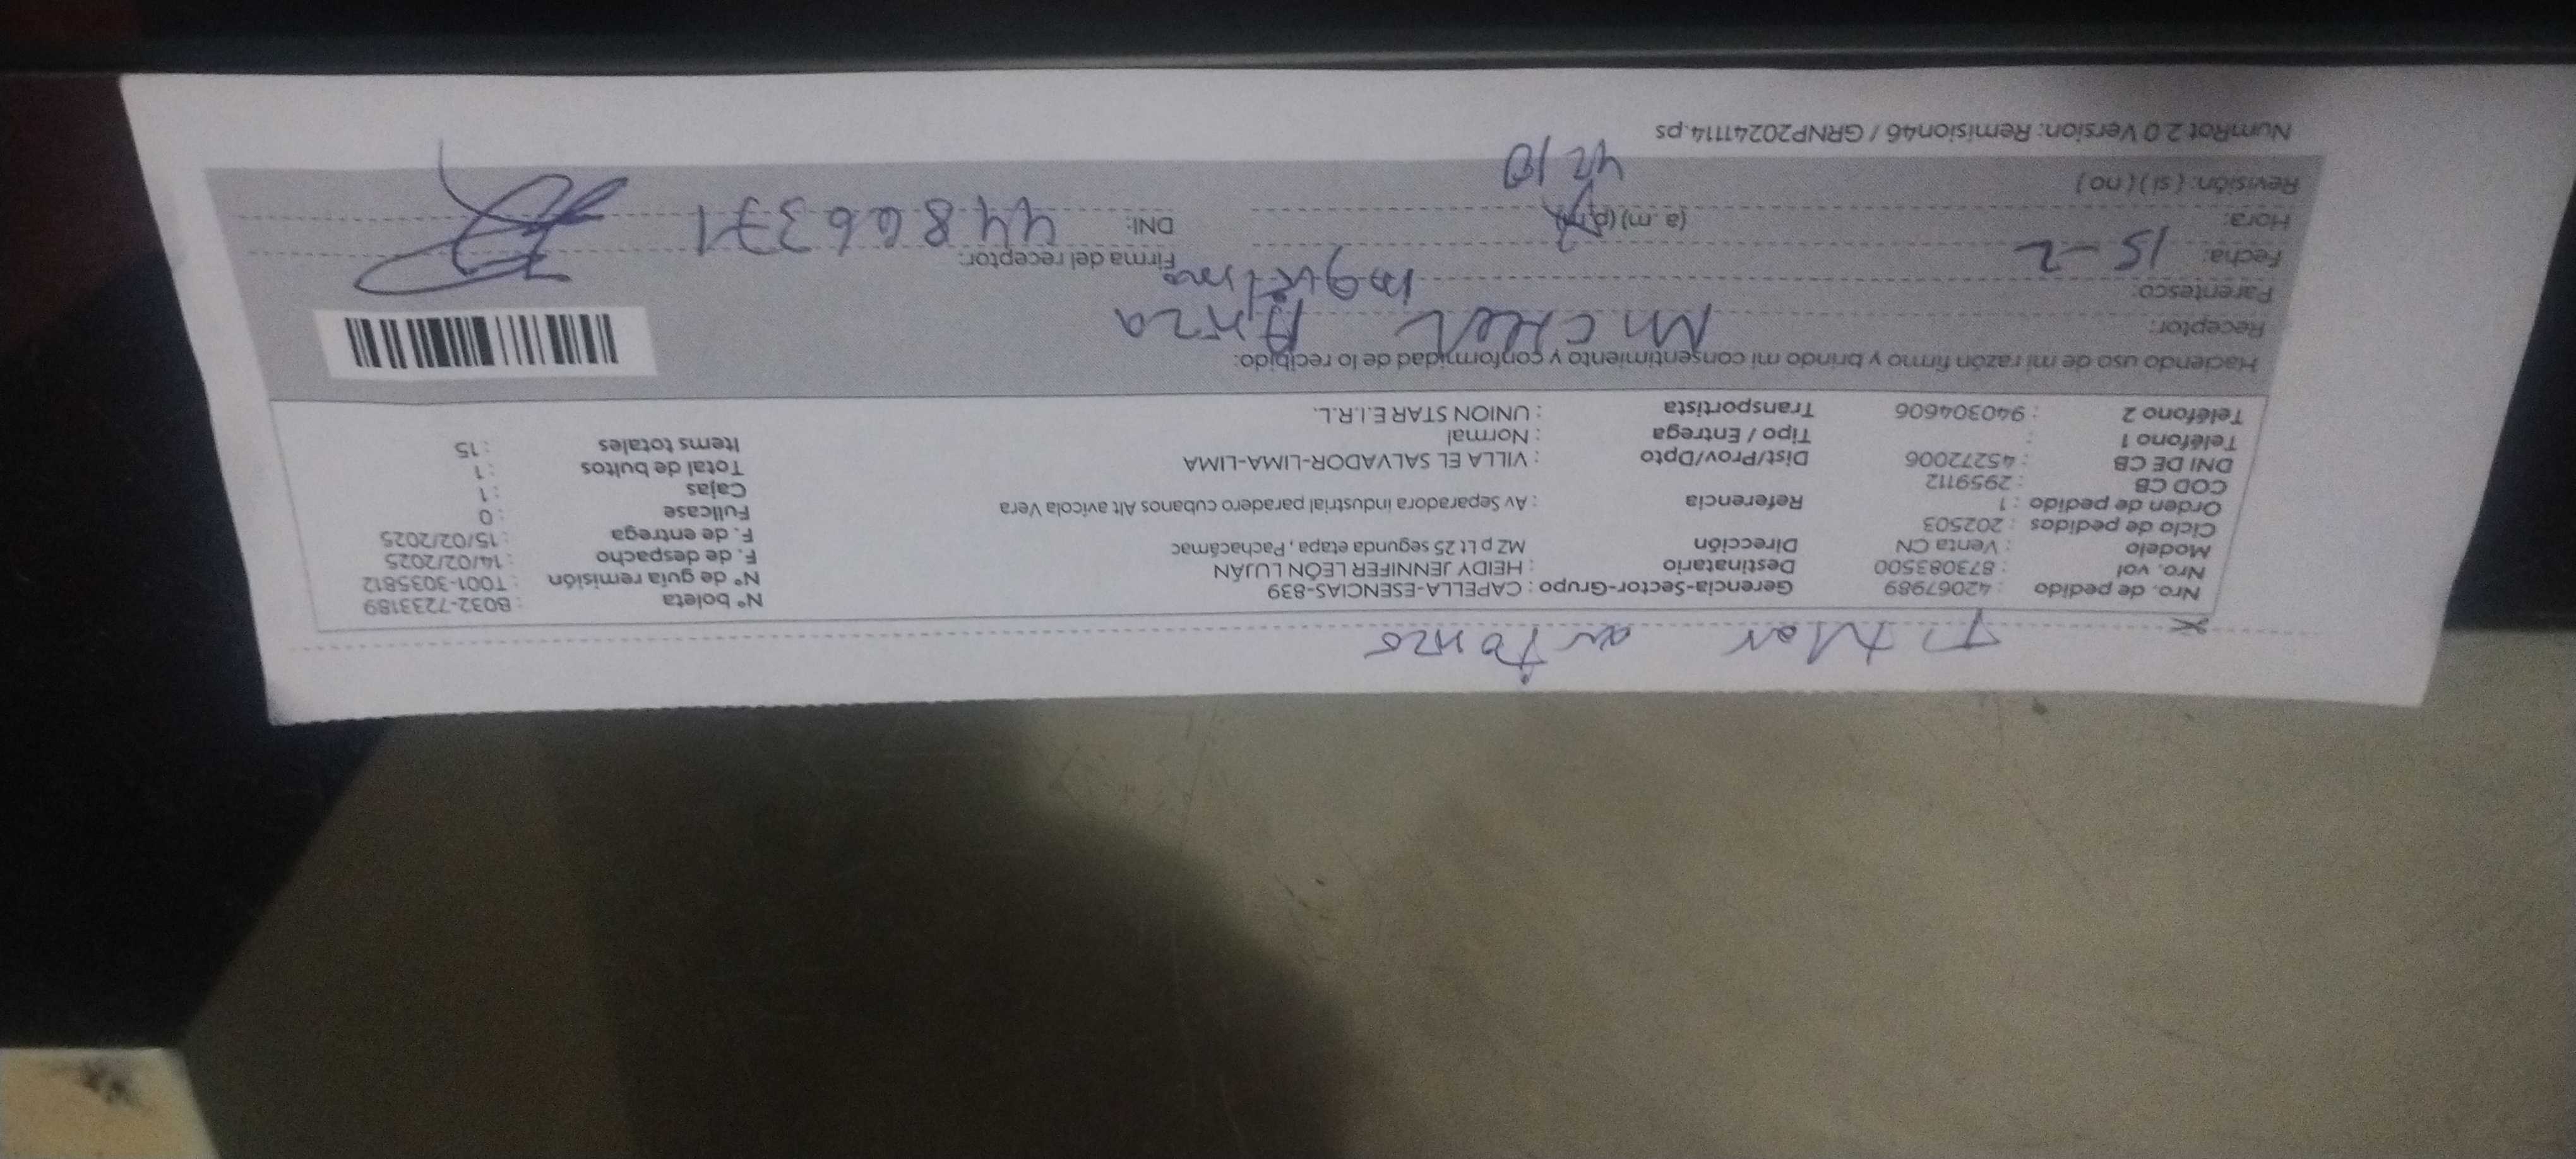 Titlar autorizo
Nro. de pedido : 42067989 Gerencia-Sector-Grupo : CAPELLA-ESENCIAS-839 N° boleta : B032-7233189
Nro. vol : 873083500 Destinatario : HEIDY JENNIFER LEÓN LUJÁN N° de guía remisión : T001-3035812
Modelo : Venta CN Dirección MZ p Lt 25 segunda etapa , Pachacámac F. de despacho : 14/02/2025
Ciclo de pedidos : 202503 F. de entrega : 15/02/2025
Orden de pedido : 1 Referencia : Av Separadora industrial paradero cubanos Alt avicola Vera Fullcase : 0
COD CB : 2959112 Cajas : 1
DNI DE CB : 45272006 Dist/Prov/Dpto : VILLA EL SALVADOR-LIMA-LIMA Total de bultos : 1
Teléfono 1 : Tipo / Entrega : Normal Items totales : 15
Teléfono 2 : 940304606 Transportista : UNION STAR E.I.R.L.
Haciendo uso de mi razón firmo y brindo mi consentimiento y conformidad de lo recibido:
Receptor:
Parentesco: inquilino
Fecha: 15-2 Firma del receptor:
Hora: (a. m) (p. m) DNI: 44866371
Revisión: ( si ) ( no )
NumRot 2.0 Version: Remision46 / GRNP20241114.ps